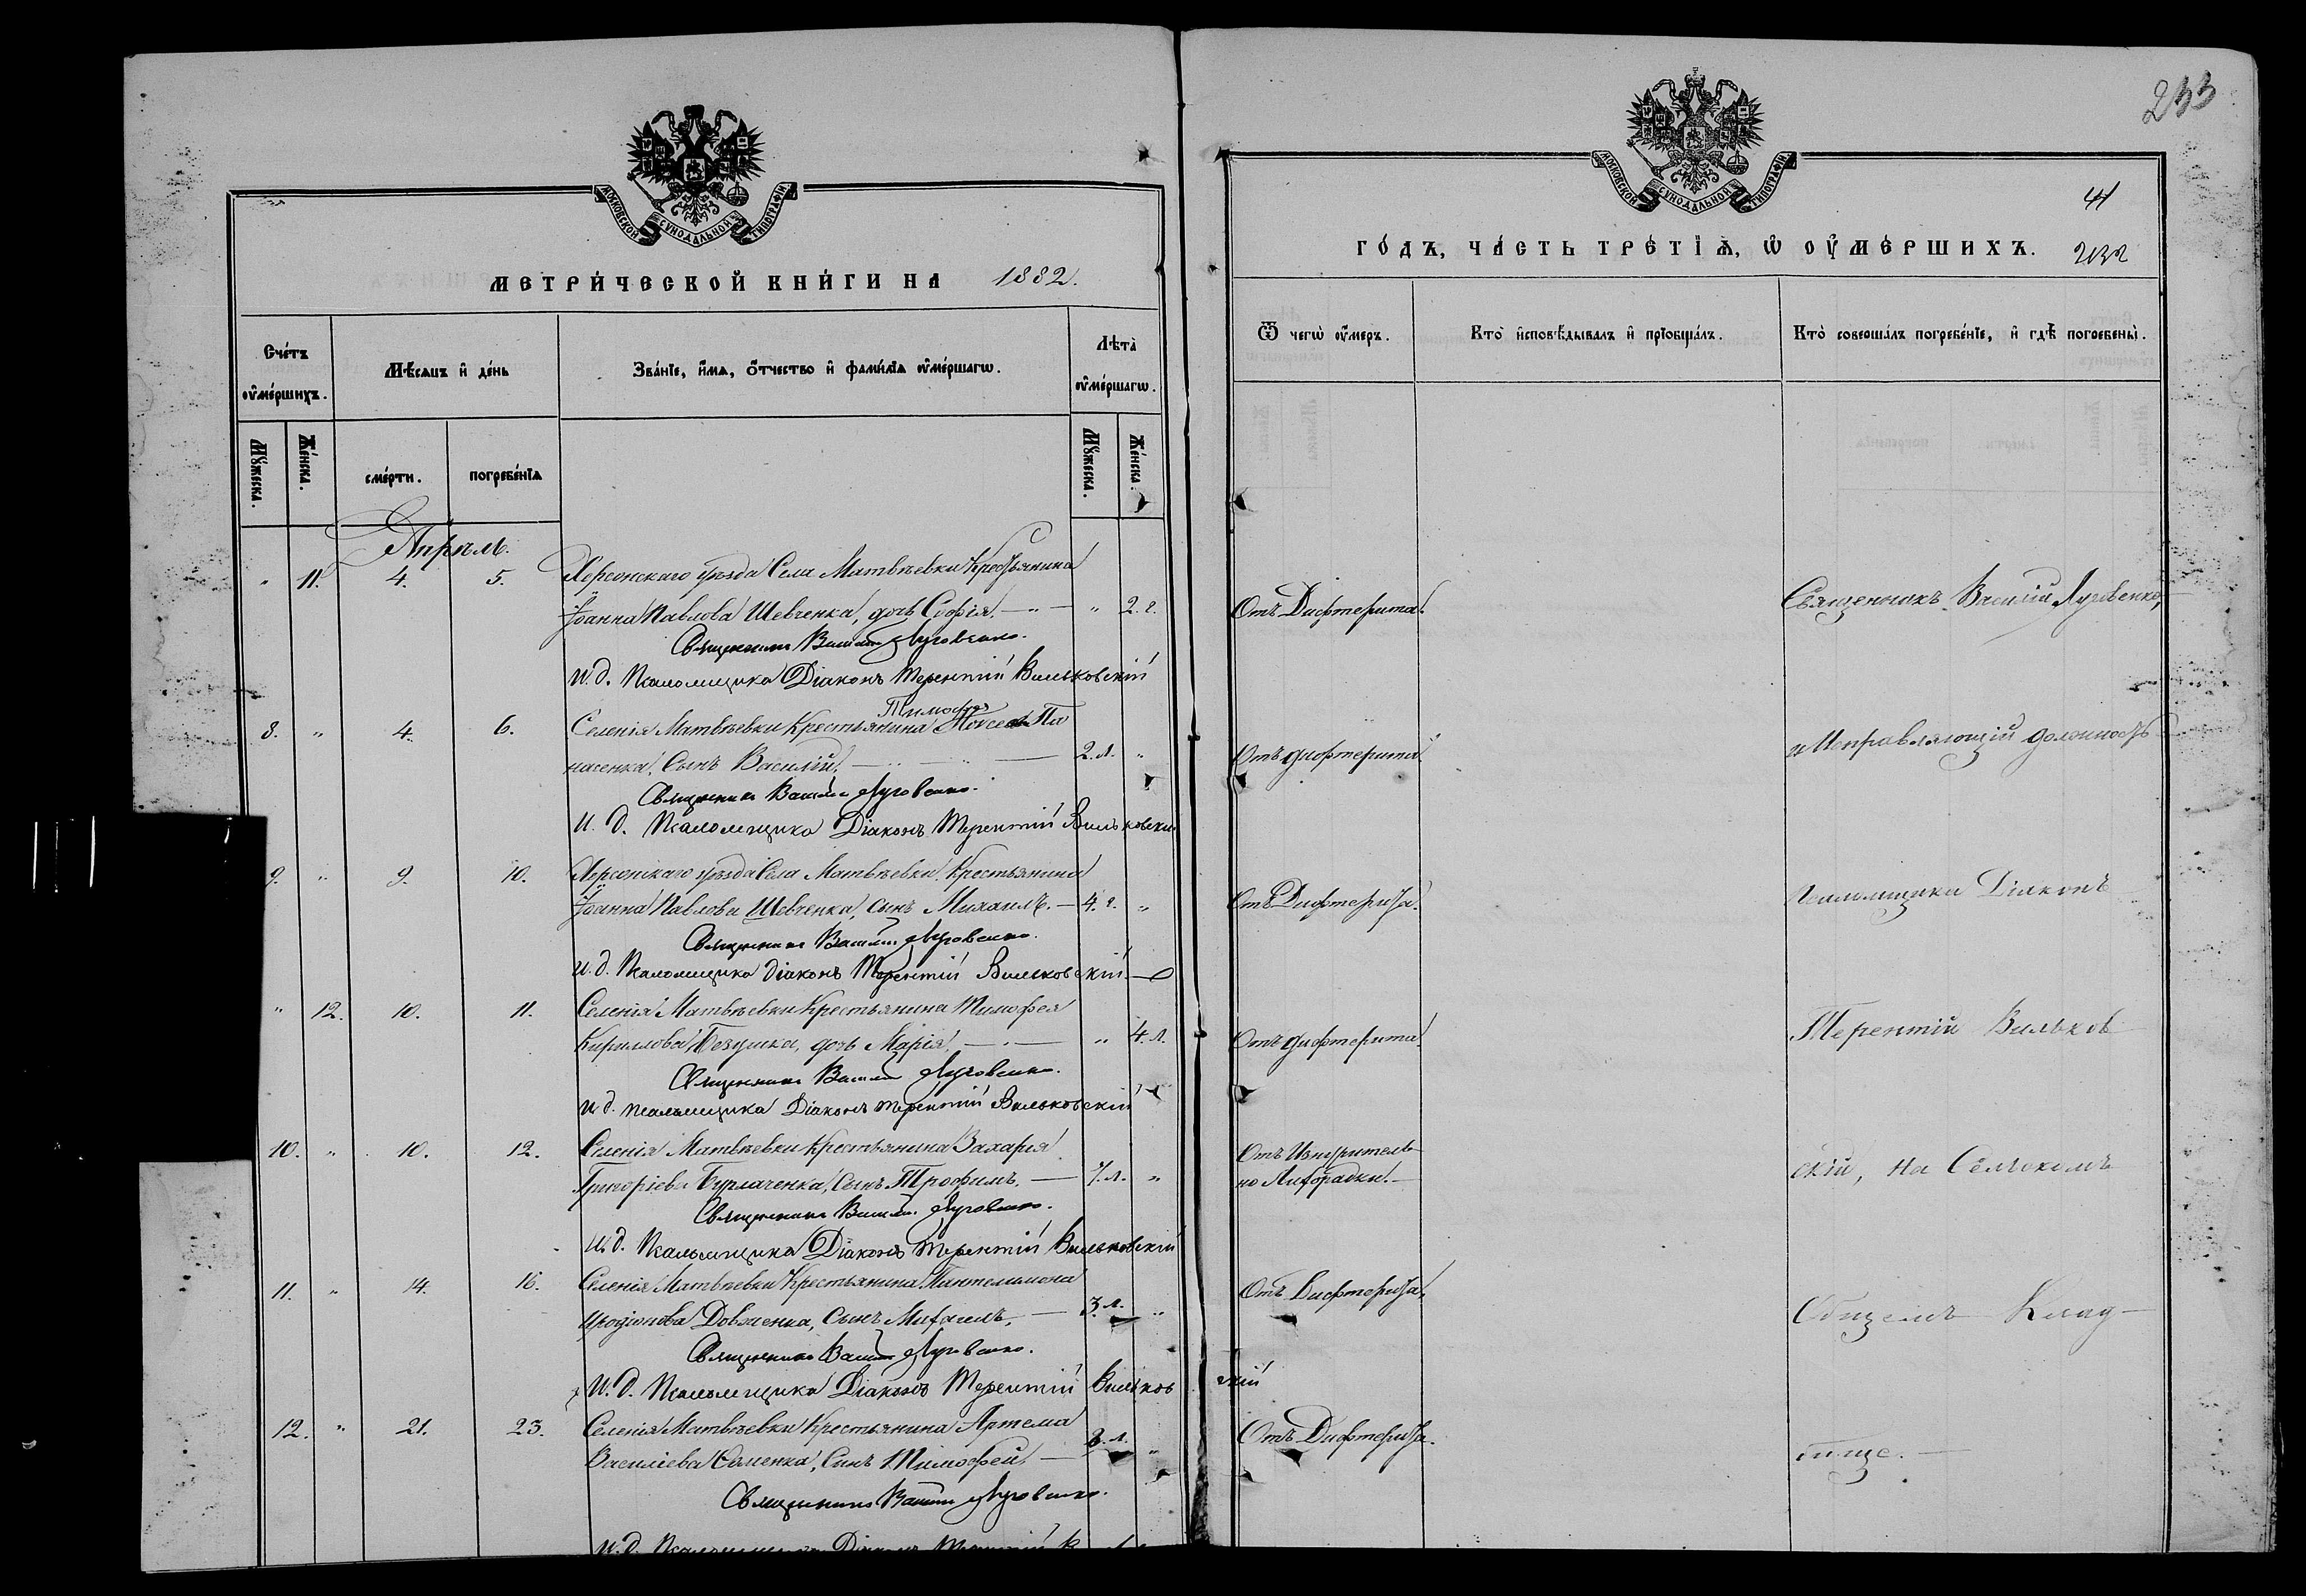 МОСКОВСКОЙ СѴНОДАЛЬНОЙ ТИПОГРАФІИ
МЕТРИ́ЧЕСКОЙ КНИ́ГИ НА 1882.
Сче́тъ ᲂу҆ме́ршихъ.
Мѣ́сяцъ и҆ де́нь
Зва́нїе, и҆́мѧ, ѻ҆́тчество и҆ фами́лїѧ ᲂу҆ме́ршагѡ.
Лѣта̀ ᲂу҆ме́ршагѡ.
Мꙋ́жеска.
Же́нска.
сме́рти.
погребе́нїѧ
Мꙋ́жеска.
Же́нска.
Апрѣль.
" 11. 4. 5. Херсонскаго уѣзда Села Матвѣевки Крестьянина
Іоанна Павлова Шевченка, дочь Софія. — " — " 2. г.
Священникъ Василій Луговенко.
И. д. Псаломщика Діаконъ Терентій Вильковскій
Тимофея
8. " 4. 6. Селенія Матвѣевки Крестьянина Па
насенка, Сынъ Василій. — 2. л. "
Священникъ Василій Луговенко.
И. д. Псаломщика Діаконъ Терентій Вильковскі
9. " 9. 10. Херсонскаго уѣзда Села Матвѣевки, Крестьянина
Іоанна Павлова Шевченка, сынъ Михаилъ. — 4. г. "
Священникъ Василій Луговенко.
И. д. Псаломщика діаконъ Терентій Вильковскій.
" 12. 10. 11. Селенія Матвѣевки Крестьянина Тимофея
Кириллова Безушка, дочь Марія. — " 4. л.
Священникъ Василій Луговенко.
И д. псаломщика Діаконъ Терентій Вильковскій
10. " 10. 12. Селенія Матвѣевки Крестьянина Захарія
Григоріева Бурлаченка, Сынъ Трофимъ. — 7. л. "
Священникъ Василій Луговенко.
И. д. Псаломщика Діаконъ Терентій Вильковскій
11. " 14. 16. Селенія Матвѣевки Крестьянина Пантелимона
Иродіонова Довженка, Сынъ Михаилъ, — 3. л. "
Священникъ Василій Луговенко.
И. д. Псаломщика Діаконъ Терентій Вильковскій
12. " 21. 23. Селенія Матвѣевки Крестьянина Артема
Василіева Сынъ Тимофей, — л. "
Священникъ Василій Луговенко.
И. д. Псаломщика Діаконъ Терентій В
233
МОСКОВСКОЙ СѴНОДАЛЬНОЙ ТИПОГРАФІИ
ГО́ДЪ, ЧА́СТЬ ТРЕ́ТЇѦ, Ѡ҆ ОУ҆МЕ́РШИХЪ. 232
Ѿ чегѡ̀ ᲂу҆́меръ.
Кто̀ и҆сповѣ́дывалъ и҆ прїѡбща́лъ.
Кто̀ соверша́лъ погребе́нїе, и҆ гдѣ̀ погребены̀.
Отъ Дифтерита.
Священникъ Василій Луговенко,
Отъ дифтерита
и Исправляющій должность
Отъ Дифтерита.
псаломщика Діаконъ
Отъ дифтерита.
Терентій Вильков
Отъ Изнуритель
но Лихорадки. —
скій, На Сельскомъ
Отъ Дифтерита,
Общемъ Клад-
Отъ Дифтерита.
бище. —